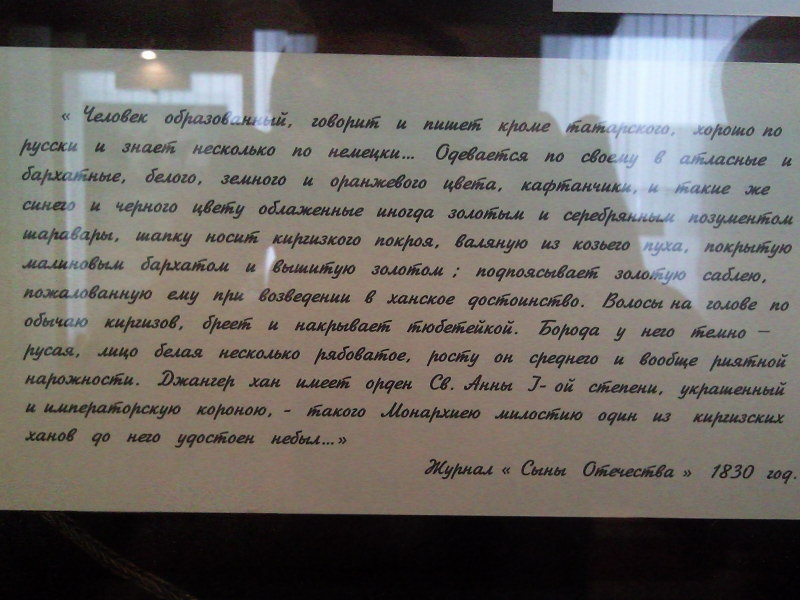 « Человек образованный, говорит и пишет кроме татарского, хорошо по
русски и знает несколько по немецки... Одевается по своему в атласные и
бархатные, белого, земного и оранжевого цвета, кафтанчики, и такие же
синего и черного цвету облаженные иногда золотым и серебрянным позументом
шаравары, шапку носит киргизкого покроя, валяную из козьего пуха, покрытую
малиновым бархатом и вышитую золотом ; подпоясывает золотую саблею,
пожалованную ему при возведении в ханское достоинство. Волосы на голове по
обычаю киргизов, бреет и накрывает тюбетейкой. Борода у него темно –
русая, лицо белая несколько рябоватое, росту он среднего и вообще риятной
нарожности. Джангер хан имеет орден Св. Анны I- ой степени, украшенный
и императорскую короною, - такого Монархиею милостию один из киргизских
ханов до него удостоен небыл...»
Журнал « Сыны Отечества » 1830 год.